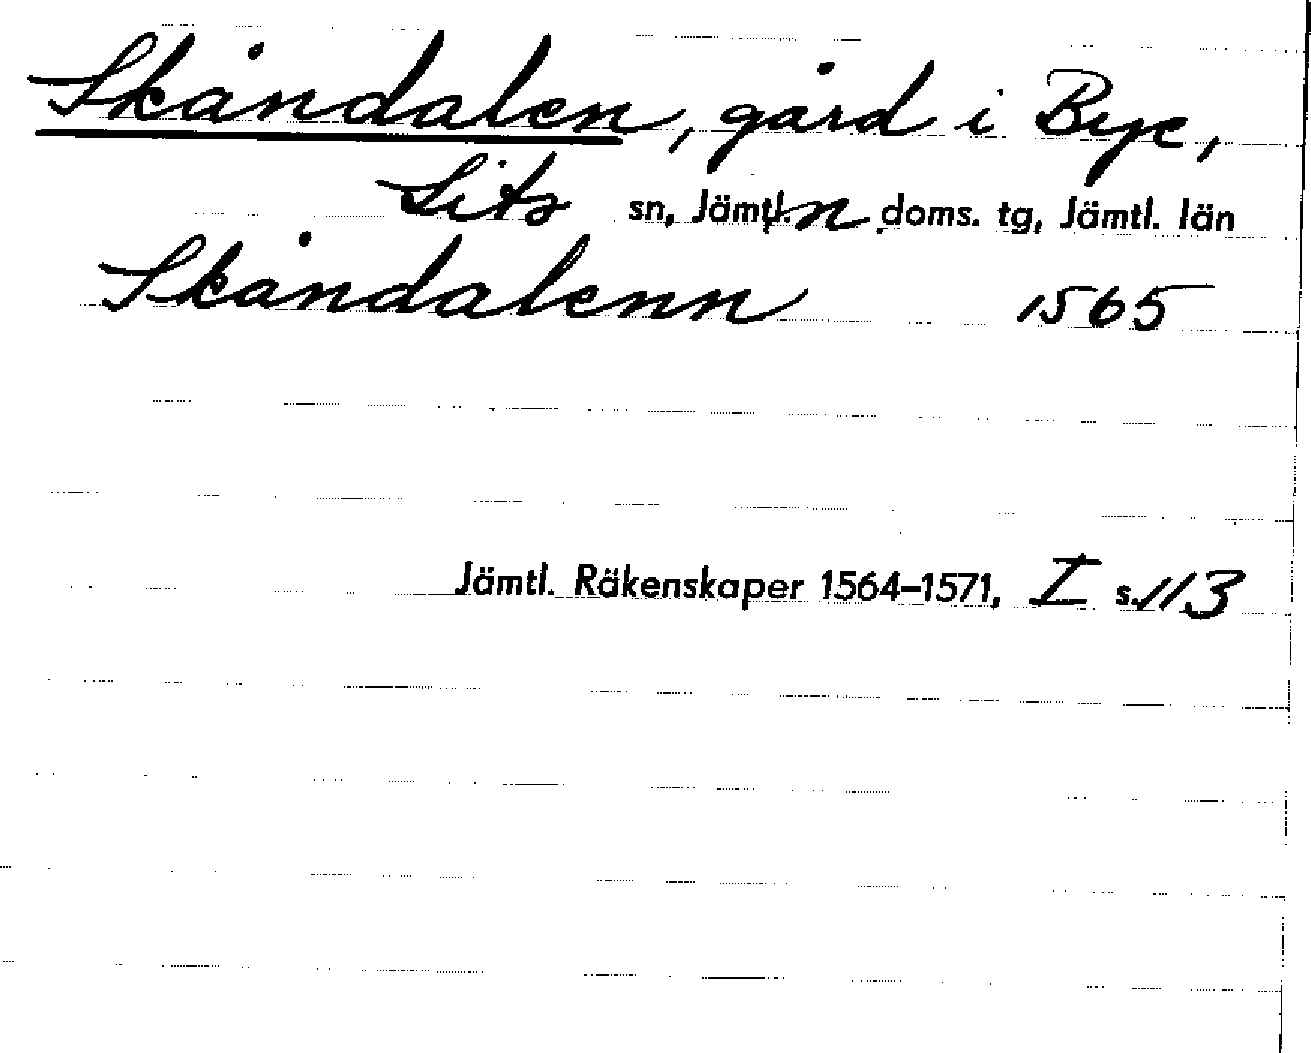 Skåndalen, gård i Bye,
Lits sn, Jämtl. n doms. tg, Jämtl. län
Skåndalenn 1565
Jämtl. Räkenskaper 1564–1571, I s. 113